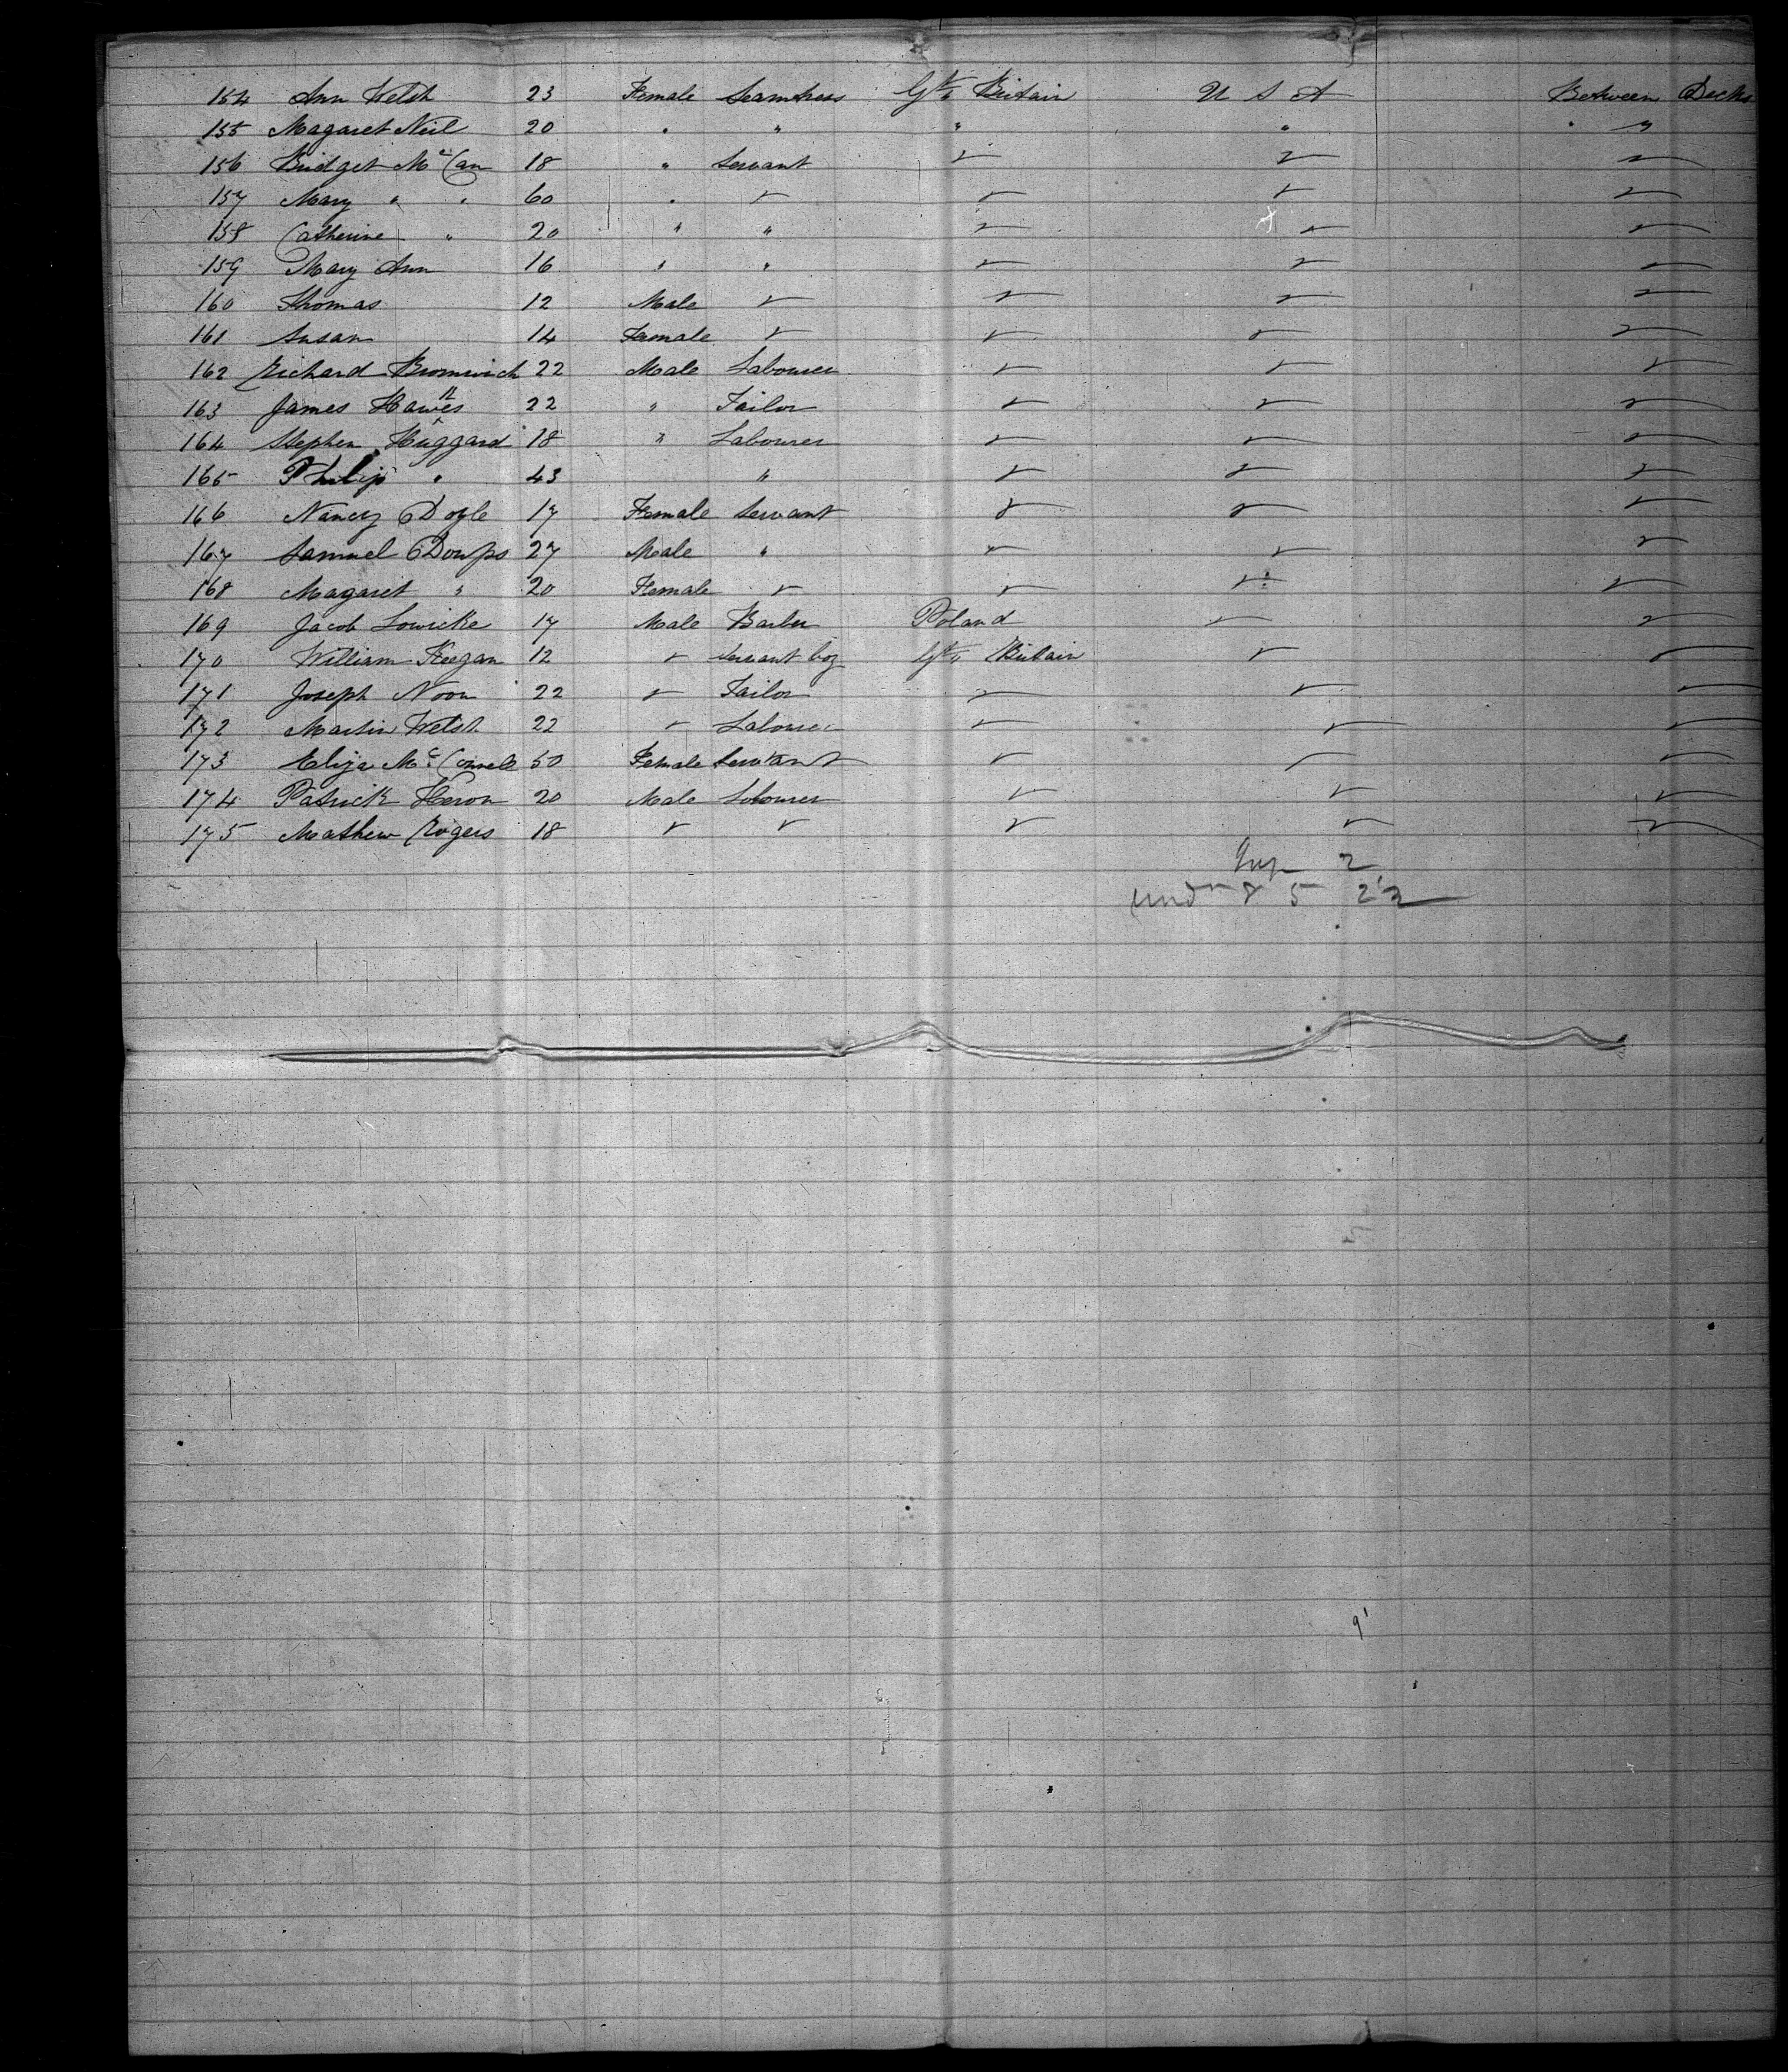 154 Ann Welsh 23 Female Seamtress Gt. Britain U S A Between Decks
155 Magaret Neil 20 " " " " " "
156 Bridget Mc Can 18 " Servant " " "
157 Mary " " 60 " " " " "
158 Catherine " 20 " " " " "
159 Mary Ann 16 " " " " "
160 Thomas 12 Male " " " "
161 Susan 14 Female " " " "
162 Richard Bromwich 22 Male Labourer " " "
163 James Hawes 22 " Tailor " " "
164 Stephen Huggard 18 " Labourer " " "
165 Philip " 43 " " " "
166 Nancy Doyle 17 Female Servant " " "
167 Samuel Doups 27 Male " " " "
168 Magaret " 20 Female " " " "
169 Jacob Lowicke 17 Male Barber Poland " "
170 William Keegan 12 " Servant boy Gt. Britain " "
171 Joseph Noon 22 " Tailor " " "
172 Martin Welsh 22 " Labourer " " "
173 Eliza Mc Connell 50 Female Servant " " "
174 Patrick Heron 20 Male Labourer " " "
175 Mathew Rogers 18 " " " " "
2
und 8 5 2